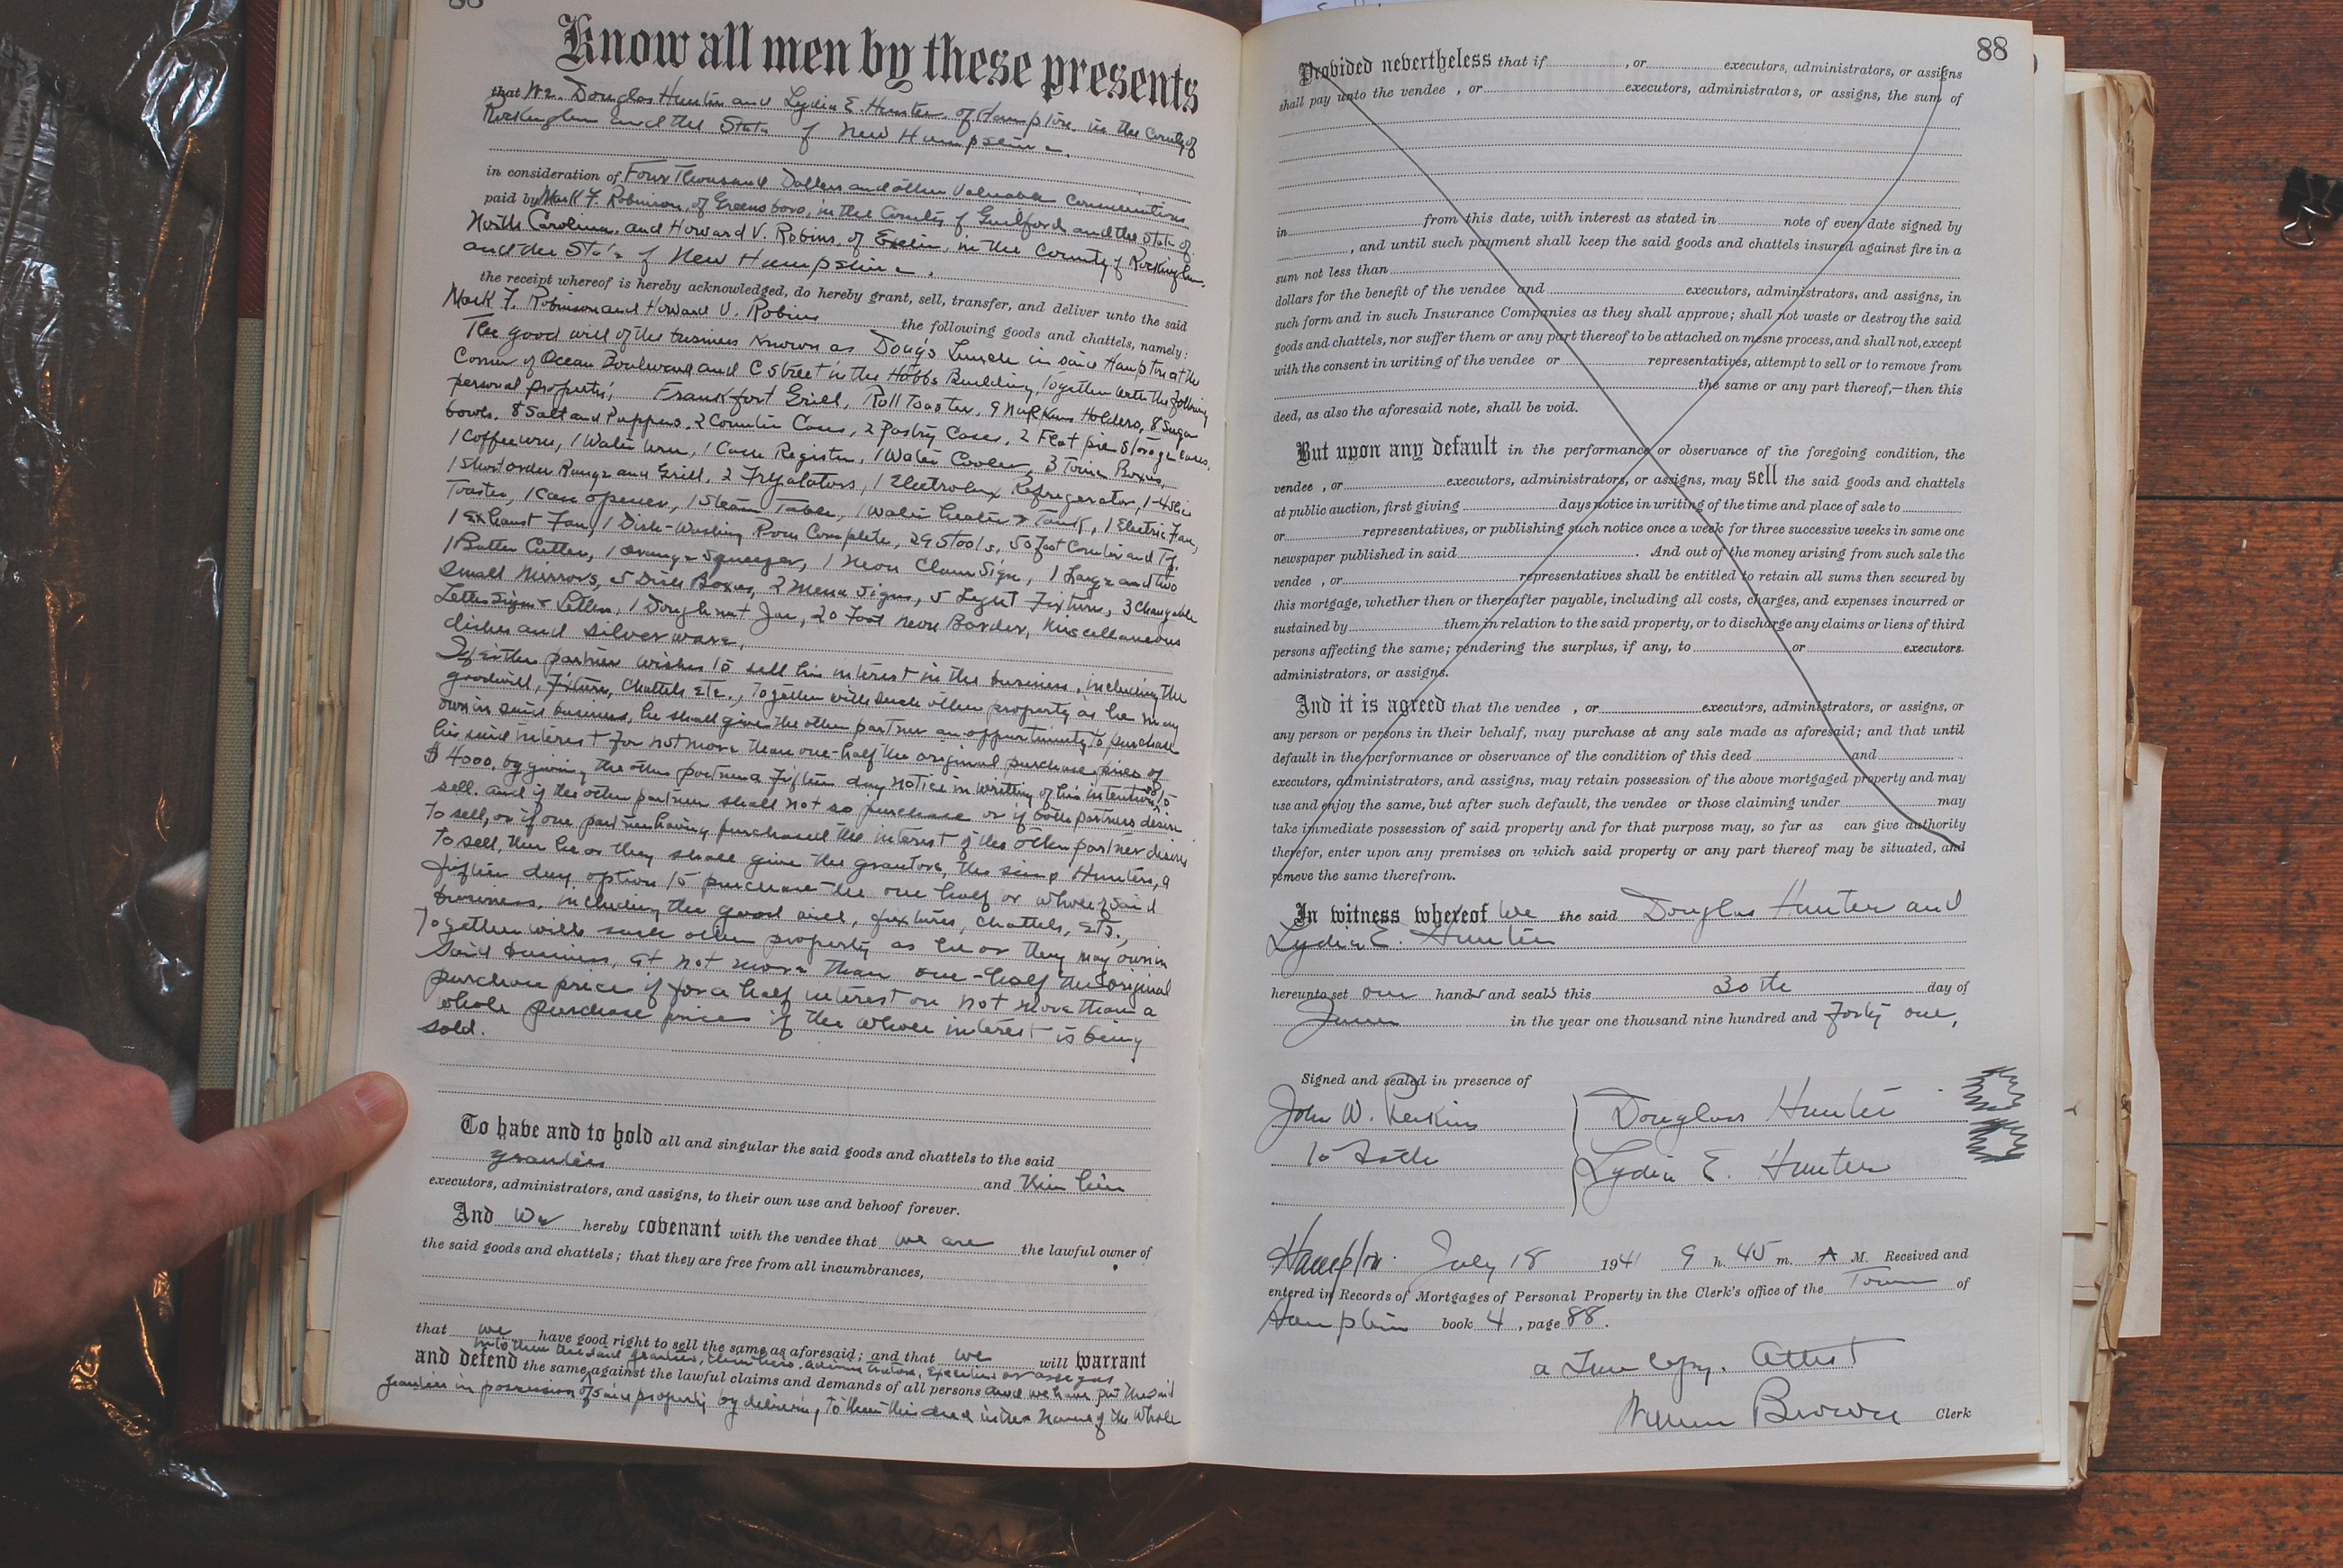 88
Know all men by these presents
that We, Douglas Hunter and Lydia E. Hunter, of Hampton, in the County of
Rockingham and the State of New Hampshire,
in consideration of Four Thousand Dollars and other Valuable considerations
paid by Mark F. Robinson, of Greensboro, in the County of Guilford and the State of
North Carolina, and Howard V. Robins, of Exeter, in the County of Rockingham,
and the State of New Hampshire.
the receipt whereof is hereby acknowledged, do hereby grant, sell, transfer, and deliver unto the said
Mark F. Robinson and Howard V. Robins the following goods and chattels, namely:
The good will of the business Known as Doug's Lunch in said Hampton at the
Corner of Ocean Boulevard and C Street in the Hobbs Building, Together with the following
personal property: Frankfort Grill, Roll Toaster, 9 Napkin Holders, 8 Sugar
bowls, 8 Salt and Peppers, 2 Counter Cases, 2 Pastry Cases, 2 Flat pie Storage Cases,
1 Coffee Urn, 1 Water Urn, 1 Cash Register, 1 Water Cooler, 3 Boxes,
1 Short order Range and Grill, 2 Fryalators, 1 Electrolux Refrigerator, 1-4 Slice
Toaster, 1 Can opener, 1 Steam Table, 1 Water heater & Tank, 1 Electric Fan,
1 Exhaust Fan, 1 Dish-Washing Room Complete, 29 Stools, 50 foot Counter and Top,
1 Butter Cutter, 1 Orange Squeezer, 1 Neon Clam Sign, 1 Large and two
Small Mirrors, 5 Dish Boxes, 2 Menu Signs, 5 Light Fixtures, 3 Changeable
Letter Signs & Letters, 1 Doughnut Jar, 20 Foot Neon Border, Miscellaneous
dishes and silverware.
If either partner wishes to sell his interest in the business, including the
goodwill, fixtures, chattels etc., Together with such other property as he may
own in said business, he shall give the other partner an opportunity to purchase
his said interest for not more than one-half the original purchase price of
$4000. by giving the other partner a fifteen day notice in writing of his intention to
sell. and if the other partner shall not so purchase or if both partners desire
to sell, or if one partner having purchased the interest of the other partner desires
to sell, then he or they shall give the grantors, the said Hunters, a
fifteen day option to purchase the one half or whole of said
business, including the good will, fixtures, chattels, etc.,
Together with such other property as he or they may own in
said business, at not more than one-half the original
purchase price if for a half interest or not more than a
whole purchase price if the whole interest is being
sold.
To have and to hold all and singular the said goods and chattels to the said
grantees and their
executors, administrators, and assigns, to their own use and behoof forever.
And We hereby covenant with the vendee that we are the lawful owner of
the said goods and chattels; that they are free from all incumbrances,
that we have good right to sell the same as aforesaid; and that we will warrant
into them the said grantees, their heirs, administrators, Executors or assigns
and defend the same against the lawful claims and demands of all persons and we have put the said
grantees in possession of said property by delivering to them this deed in the name of the whole
88
Provided nevertheless that if , or executors, administrators, or assigns
shall pay unto the vendee , or executors, administrators, or assigns, the sum of
in from this date, with interest as stated in note of even date signed by
, and until such payment shall keep the said goods and chattels insured against fire in a
sum not less than
dollars for the benefit of the vendee and executors, administrators, and assigns, in
such form and in such Insurance Companies as they shall approve; shall not waste or destroy the said
goods and chattels, nor suffer them or any part thereof to be attached on mesne process, and shall not, except
with the consent in writing of the vendee or representatives, attempt to sell or to remove from
the same or any part thereof,—then this
deed, as also the aforesaid note, shall be void.
But upon any default in the performance or observance of the foregoing condition, the
vendee , or executors, administrators, or assigns, may sell the said goods and chattels
at public auction, first giving days notice in writing of the time and place of sale to
or representatives, or publishing such notice once a week for three successive weeks in some one
newspaper published in said . And out of the money arising from such sale the
vendee , or representatives shall be entitled to retain all sums then secured by
this mortgage, whether then or thereafter payable, including all costs, charges, and expenses incurred or
sustained by them in relation to the said property, or to discharge any claims or liens of third
persons affecting the same; rendering the surplus, if any, to or executors.
administrators, or assigns.
And it is agreed that the vendee , or executors, administrators, or assigns, or
any person or persons in their behalf, may purchase at any sale made as aforesaid; and that until
default in the performance or observance of the condition of this deed and
executors, administrators, and assigns, may retain possession of the above mortgaged property and may
use and enjoy the same, but after such default, the vendee or those claiming under may
take immediate possession of said property and for that purpose may, so far as can give authority
therefor, enter upon any premises on which said property or any part thereof may be situated, and
remove the same therefrom.
In witness whereof We the said Douglas Hunter and
Lydia E. Hunter
hereunto set our hands and seals this 30th day of
June in the year one thousand nine hundred and Forty one,
Signed and sealed in presence of
John W. Perkins
to both
Douglas Hunter
Lydia E. Hunter
Hampton July 18 1941 9 h. 45 m. A M. Received and
entered in Records of Mortgages of Personal Property in the Clerk's office of the Town of
Hampton book 4 , page 88.
a True Copy. Attest
Brown Clerk